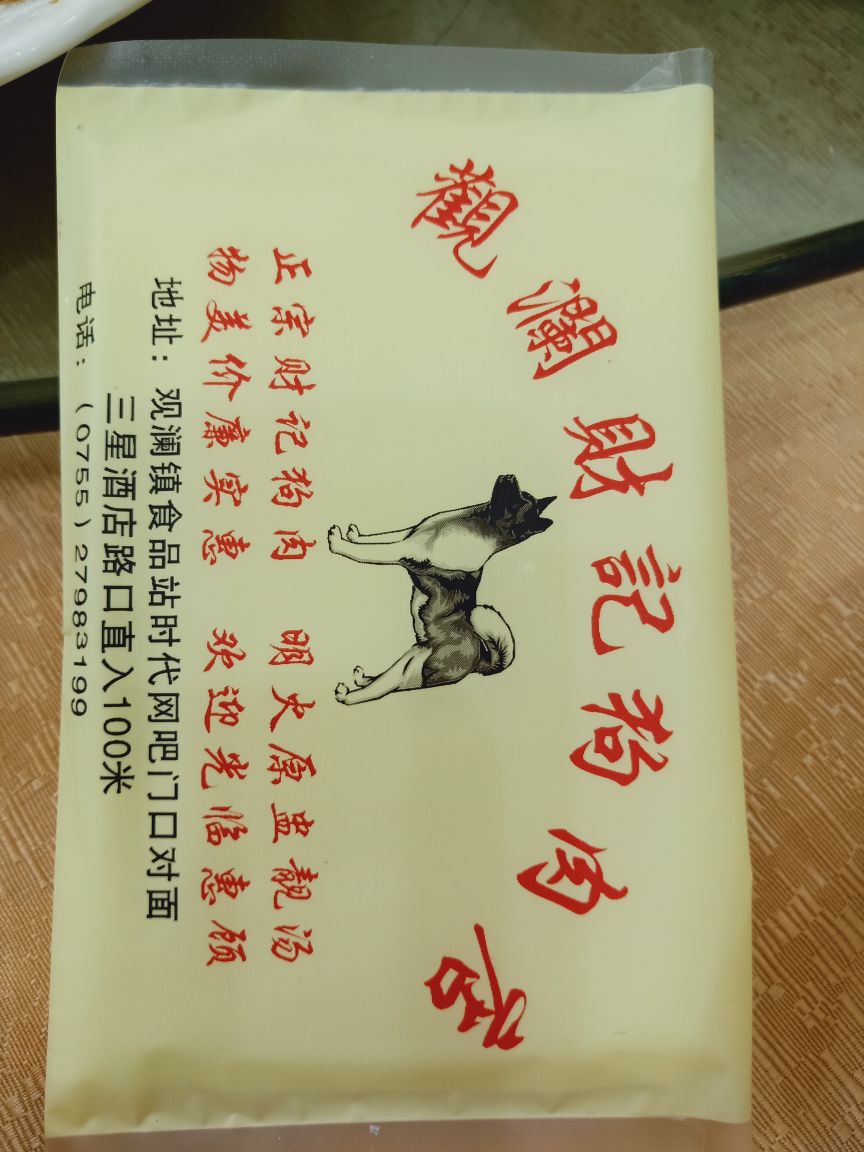 觀瀾財記狗肉店
正宗财记狗肉 明火原盅靓汤
物美价廉实惠 欢迎光临惠顾
地址：观澜镇食品站时代网吧门口对面
三星酒店路口直入100米
电话：（0755）27983199